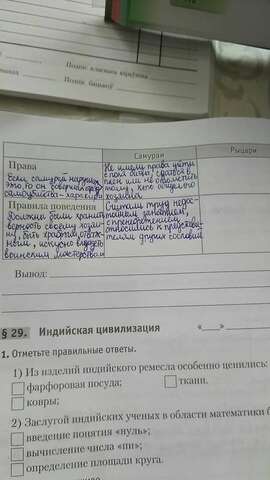 Подпис класного кіраўніка
Подпіс бацькоў
Самураи
Рыцари
Права
если самурай нарушал
это, то он совершал обряд
самоубийства - харакири
Не имели права уйти
с поля битвы, сдаться в
плен или не отомстить
тому, кто обидел его
хозяина
Правила поведения
Должны были хранить
верность своему хозяи-
ну, быть храбрым, отваж-
ным, искусно владеть
воинским мастерством
Считали труд недос-
тойным занятием,
с пренебрежением
относились к представи-
телям других сословий
Вывод:
§ 29. Индийская цивилизация
1. Отметьте правильные ответы.
1) Из изделий индийского ремесла особенно ценились:
фарфоровая посуда;
ткани.
ковры;
2) Заслугой индийских ученых в области математики б
введение понятия «нуль»;
вычисление числа «пи»;
определение площади круга.